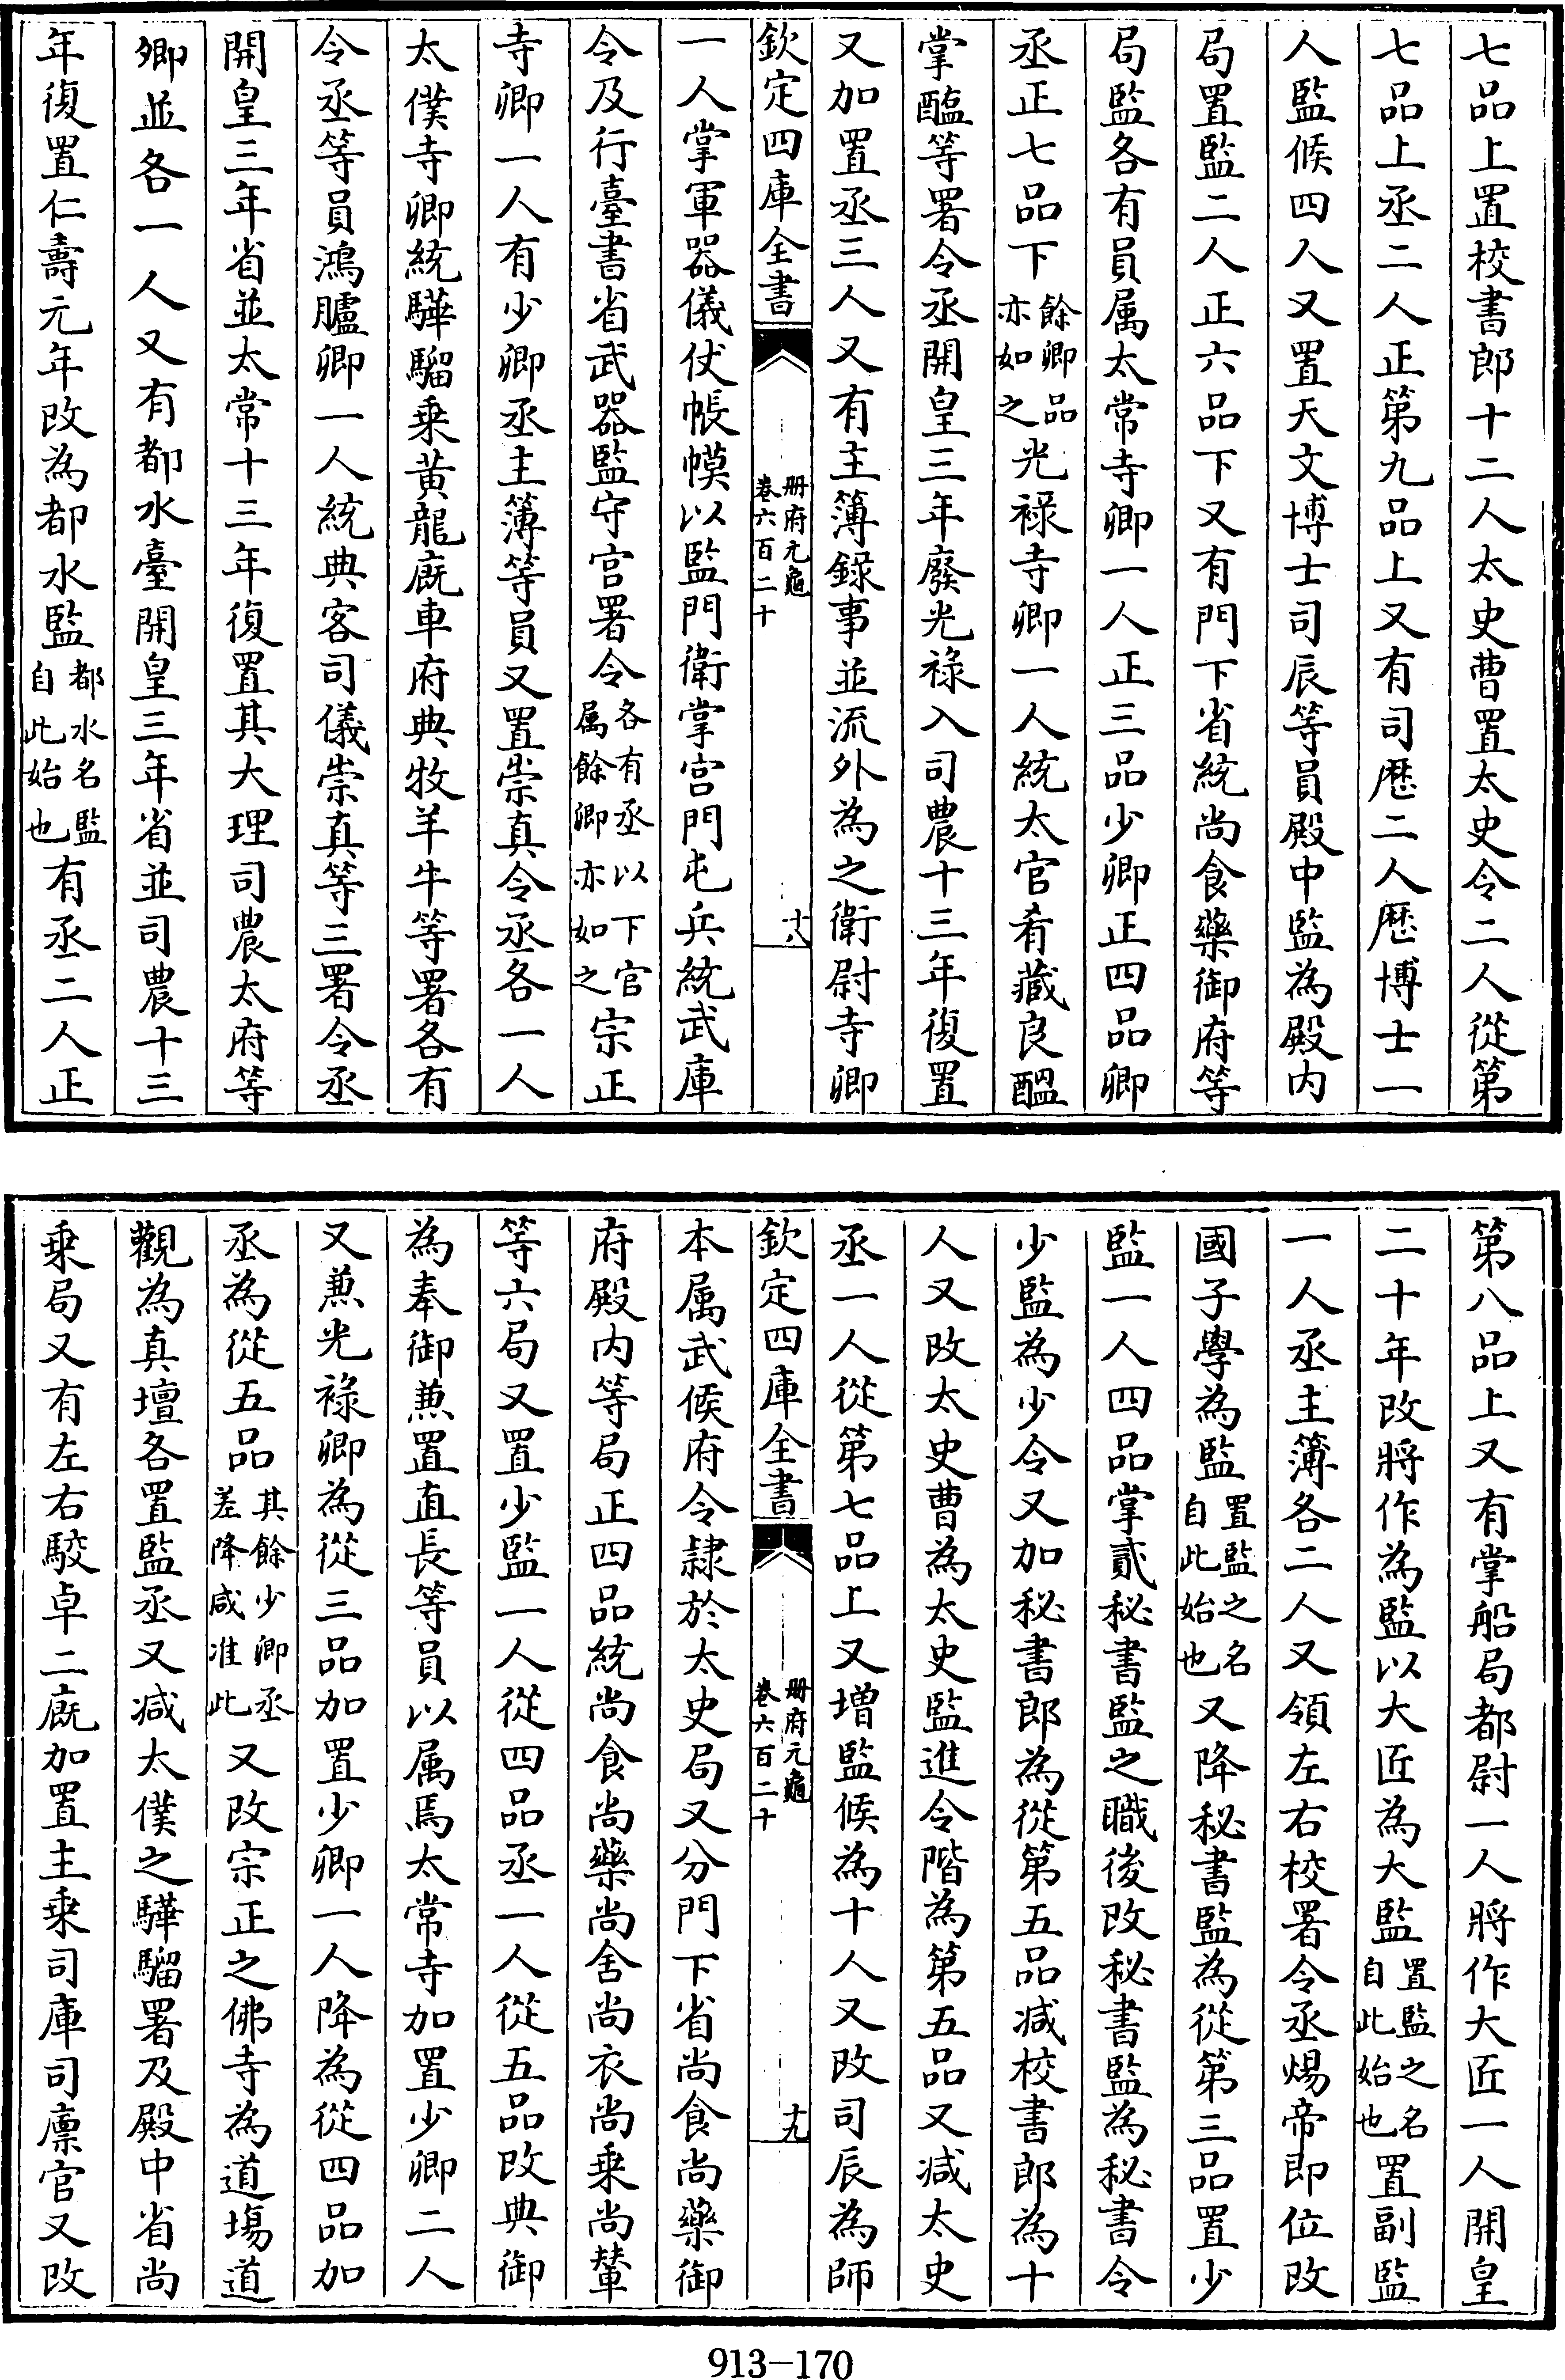 七品上置校書郎十二人太史曹置太史令二人從第
七品上丞二人正第九品上又有司厯二人厯博士一
人監候四人又置天文博士司辰等員殿中監為殿内
局置監二人正六品下又有門下省統尚食藥御府等
局監各有員属太常寺卿一人正三品少卿正四品卿
丞正七品下餘卿品亦如之光禄寺卿一人統太官肴藏良醖
掌醢等署令丞開皇三年廢光禄入司農十三年復置
又加置丞三人又有主簿錄事並流外為之衛尉寺卿
欽定四庫全書
册府元龜
卷六百二十
十八
一人掌軍器儀仗帳幙以監門衛掌宫門屯兵統武庫
令及行臺書省武器監守宫署令各有丞以下官属餘卿亦如之宗正
寺卿一人有少卿丞主簿等員又置崇真令丞各一人
太僕寺卿統驊騮乗黄龍廐車府典牧羊牛等署各有
令丞等員鴻臚卿一人統典客司儀崇真等三署令丞
開皇三年省並太常十三年復置其大理司農太府等
卿並各一人又有都水臺開皇三年省並司農十三
年復置仁壽元年改為都水監都水名監自此始也有丞二人正
第八品上又有掌船局都尉一人將作大匠一人開皇
二十年改將作為監以大匠為大監置監之名自此始也置副監
一人丞主簿各二人又領左右校署令丞煬帝即位改
國子學為監置監之名自此始也又降秘書監為從第三品置少
監一人四品掌貳秘書監之職後改秘書監為秘書令
少監為少令又加秘書郎為從第五品减校書郎為十
人又改太史曹為太史監進令階為第五品又减太史
丞一人從第七品上又增監候為十人又改司辰為師
欽定四庫全書
册府元龜
卷六百二十
十九
本属武候府令隷於太史局又分門下省尚食尚藥御
府殿内等局正四品統尚食尚藥尚舍尚衣尚乗尚輦
等六局又置少監一人從四品丞一人從五品改典御
為奉御兼置直長等員以属焉太常寺加置少卿二人
又兼光禄卿為從三品加置少卿一人降為從四品加
丞為從五品其餘少卿丞差降咸准此又改宗正之佛寺為道塲道
觀為真壇各置監丞又减太僕之驊騮署及殿中省尚
乗局又有左右駮卓二廐加置主乗司庫司廪官又改
913-170